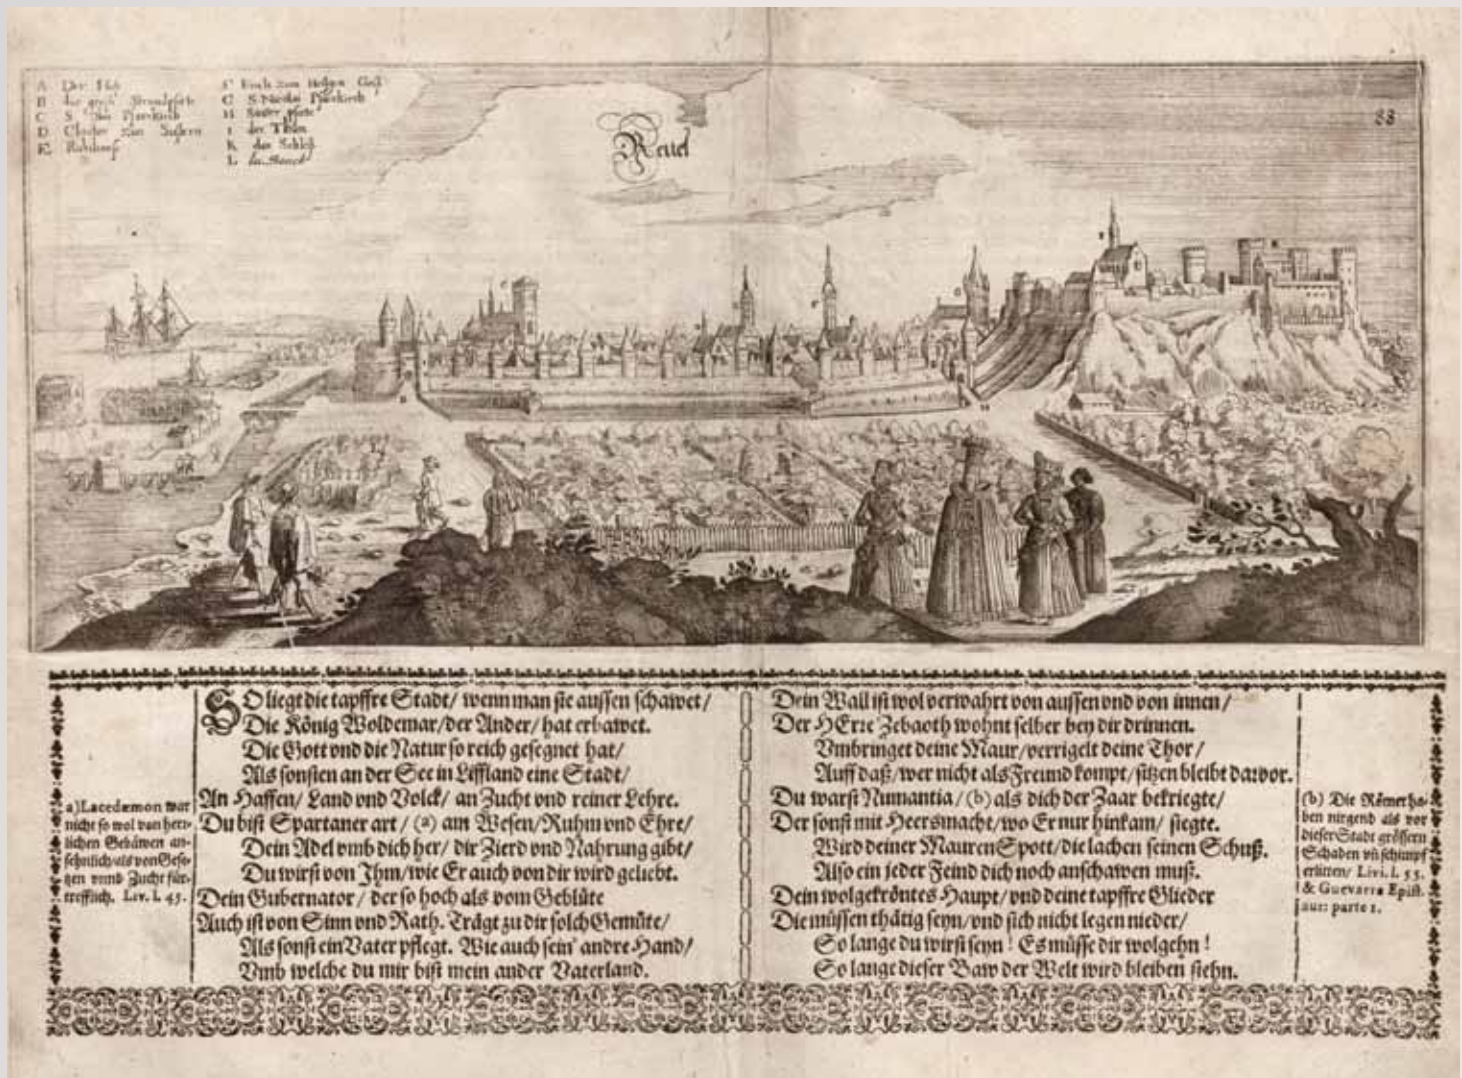 A Der
B die groß Strandpforte
C S Pfarrkirch
D Closter zun Süstern
E Rahthauß
F Kirch zum Heiligen Geist
G S Nicolai Pfarrkirch
H pforte
I der Thum
K das Schloß
L
Revel
88
SO liegt die tapffre Stadt/ wenn man sie aussen schawet/
Die König Woldemar/ der Ander/ hat erbawet.
Die Gott vnd die Natur so reich gesegnet hat/
Als sonsten an der See in Liffland eine Stadt/
An Haffen/ Land vnd Volck/ an Zucht vnd reiner Lehre.
Du bist Spartaner art/ (a) am Wesen/ Ruhm vnd Ehre/
Dein Adel vmb dich her/ dir Zierd vnd Nahrung gibt/
Du wirst von Ihm/ wie Er auch von dir wird geliebt.
Dein Gubernator/ der so hoch als vom Geblüte
Auch ist von Sinn vnd Rath. Trägt zu dir solch Gemüte/
Als sonst ein Vater pflegt. Wie auch sein' andre Hand/
Vmb welche du mir bist mein ander Vaterland.
a) Lacedæmon war
nicht so wol von herr-
lichen Gebäwen an-
sehnlich/ als von Gese-
tzen vnnd Zucht für-
trefflich. Liv. l. 45.
Dein Wall ist wol verwahrt von aussen vnd von innen/
Der HErre Zebaoth wohnt selber bey dir drinnen.
Vmbringet deine Maur/ verrigelt deine Thor/
Auff daß/ wer nicht als Freund kompt/ sitzen bleibt darvor.
Du warst Numantia/ (b) als dich der Zaar bekriegte/
Der sonst mit Heersmacht/ wo Er nur hinkam/ siegte.
Wird deiner Mauren Spott/ die lachen seinen Schuß.
Also ein jeder Feind dich noch anschawen muß.
Dein wolgekröntes Haupt/ vnd deine tapffre Glieder
Die müssen thätig seyn/ vnd sich nicht legen nieder/
So lange du wirst seyn! Es müsse dir wolgehn!
So lange dieser Baw der Welt wird bleiben stehn.
(b) Die Römer ha-
ben nirgend als vor
dieser Stadt grössern
Schaden vñ schimpf
erlitten/ Livi. l. 55.
& Guevarra Epist.
aur: parte 1.